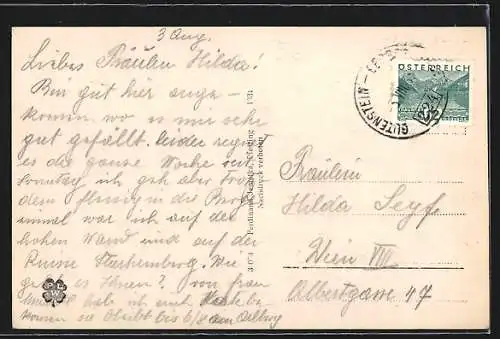 3 Aug.
Liebes Fräulein Hilda!
Bin gut hier ange-
kommen, wo es mir sehr
gut gefällt. Leider regnet
es die ganze Woche seit
Sonntag, ich geh aber trotz-
dem fleissig in die Berge
einmal war ich auf der
hohen Wand und auf der
Ruine Starhemberg. Wie
geht es Ihnen? Von Frau
hab ich erst Karte be-
kommen sie bleibt bis 6/8 am
3074 Ferdinand Mödling 1931
Nachdruck verboten
GUTENSTEIN
ÖSTERREICH
Fräulein
Hilda Seyfe
Wien VIII
Albertgasse 47